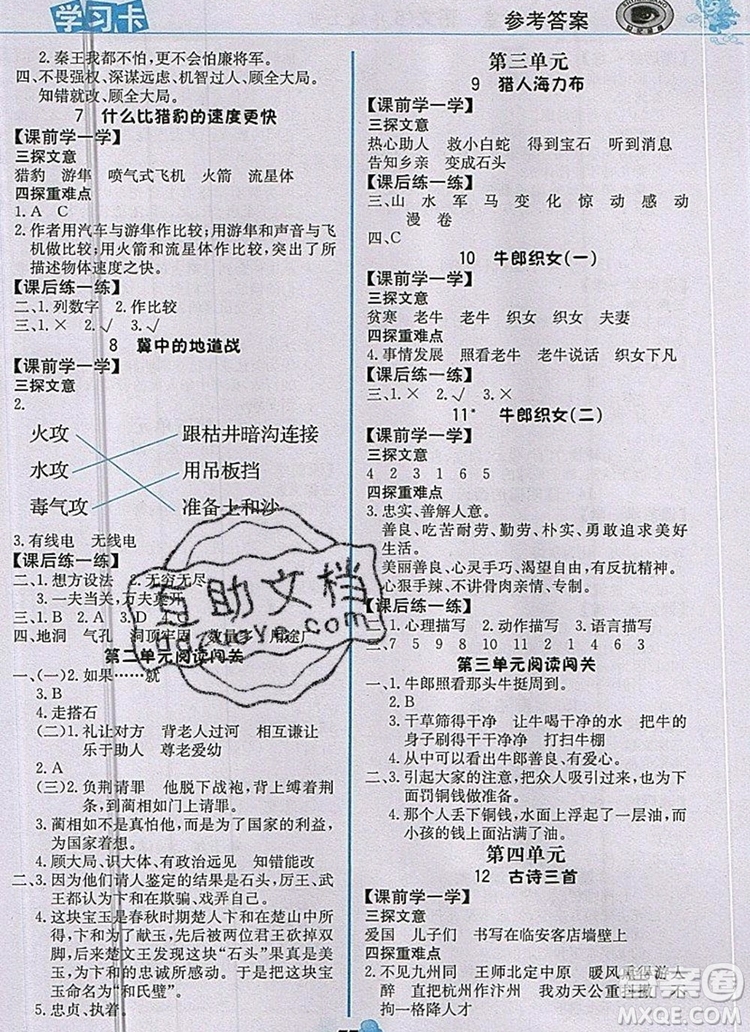 学习卡
参考答案
2. 秦王我都不怕，更不会怕廉将军。
四、不畏强权、深谋远虑、机智过人、顾全大局。
知错就改、顾全大局。
7 什么比猎豹的速度更快
【课前学一学】
三探文意
猎豹 游隼 喷气式飞机 火箭 流星体
四探重难点
1. A C
2. 作者用汽车与游隼作比较；用游隼和声音与飞
机做比较；用火箭和流星体作比较，突出了所
描述物体速度之快。
【课后练一练】
二、1. 列数字 2. 作比较
三、1. × 2. √ 3. √
8 冀中的地道战
【课前学一学】
三探文意
2.
火攻 跟枯井暗沟连接
水攻 用吊板挡
毒气攻 准备土和沙
3. 有线电 无线电
【课后练一练】
二、1. 想方设法 无穷无尽
3. 一夫当关，万夫莫开
三、1. B 2. A 3. D
四、地洞 气孔 洞顶牢固 数量多 用途广
第二单元阅读闯关
一、(一)2. 如果……就
3. B
4. 走搭石
(二)1. 礼让对方 背老人过河 相互谦让
乐于助人 尊老爱幼
2. A
(三)2. 负荆请罪 他脱下战袍，背上荆条，
到蔺相如门上请罪。
3. 蔺相如不是真怕他，而是为了国家的利益，
为国家着想。
4. 顾大局、识大体、有政治远见 知错能改
二、3. 因为他们请人鉴定的结果是石头，厉王、武
王都认为卞和在欺骗、戏弄自己。
4. 这块宝玉是春秋时期楚人卞和在山上发现
的，卞和为了献玉，先后被两位君王砍掉双
脚，后来楚文王发现这块“石头”果真是美
玉，为表彰卞和的忠诚和执着，把这块宝
玉命名为“和氏璧”。
5. 忠贞、执着。
第三单元
9 猎人海力布
【课前学一学】
三探文意
热心助人 救小白蛇 得到宝石 听到消息
告知乡亲 变成石头
【课后练一练】
三、山 水 军 马 变 化 惊 动 感 动
漫 卷
四、C
10 牛郎织女(一)
【课前学一学】
三探文意
贫寒 老牛 老牛 织女 织女 夫妻
四探重难点
4. 事情发展 照看老牛 老牛说话 织女下凡
【课后练一练】
三、1. × 2. √ 3. ×
11* 牛郎织女(二)
【课前学一学】
三探文意
4 2 3 1 6 5
四探重难点
3. 忠实、善解人意。
善良、吃苦耐劳、勤劳、朴实、勇敢追求美好
生活。
美丽善良、心灵手巧、渴望自由。
心狠手辣、不讲骨肉亲情、专制。
【课后练一练】
六、1. 心理描写 2. 动作描写 3. 语言描写
七、7 5 9 1 3 8 4 6 2
第三单元阅读闯关
一、1. 牛郎照看那头牛挺周到。
2. B
3. 干草筛得干干净净 让牛喝干净的水 把牛的
毛刷得干干净净 打扫牛棚
4. 从中可以看出牛郎善良、勤劳。
二、3. 引起大家的注意，把众人吸引到一起，为下
面罚铜钱做准备。
4. 那个人怎么知道水面上浮起了一层油，而
小孩的钱上正好沾满了油。
第四单元
12 古诗三首
【课前学一学】
三探文意
爱国 儿子们 书写在临安客店墙壁上
四探重难点
2. 不见九州同 王师北定中原 暖风熏得游人
醉 直把杭州作汴州 我劝天公重抖擞 不
拘一格降人才
互助文档